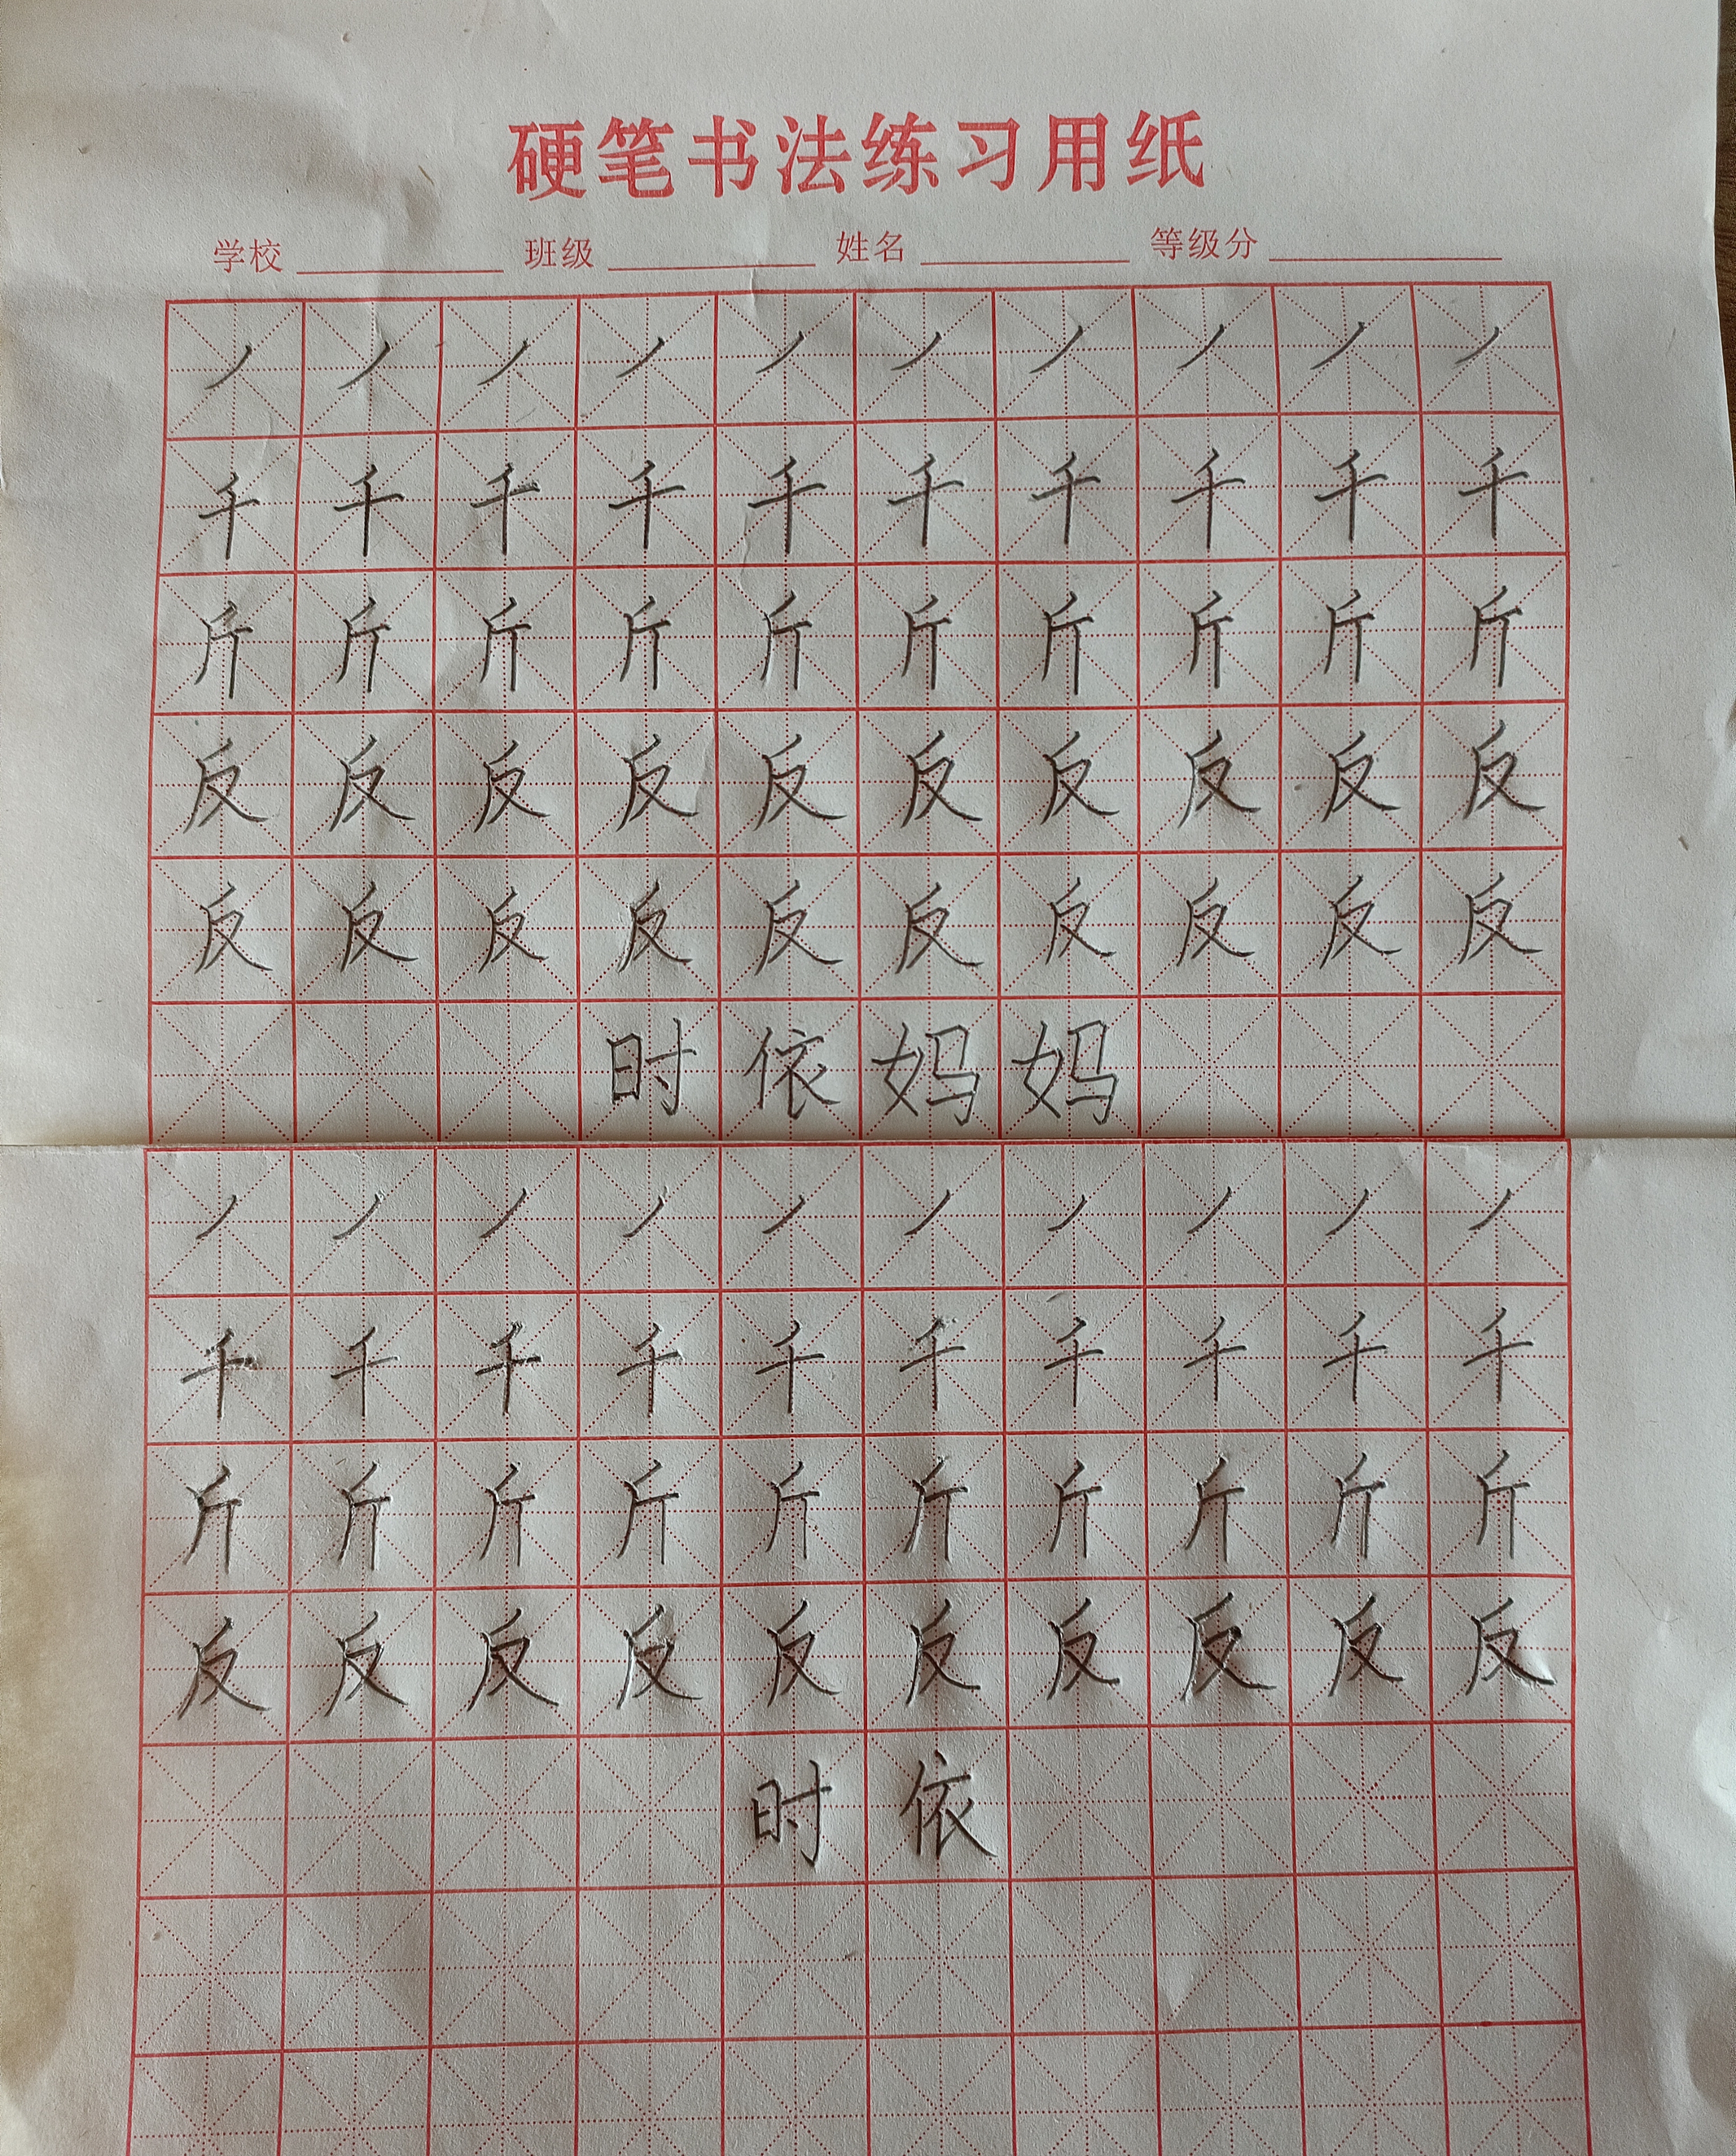 硬笔书法练习用纸
学校 班级 姓名 等级分
丿丿丿丿丿丿丿丿丿丿
千千千千千千千千千千
斤斤斤斤斤斤斤斤斤斤
反反反反反反反反反反
反反反反反反反反反反
时依妈妈
丿丿丿丿丿丿丿丿丿丿
千千千千千千千千千千
斤斤斤斤斤斤斤斤斤斤
反反反反反反反反反反
时依